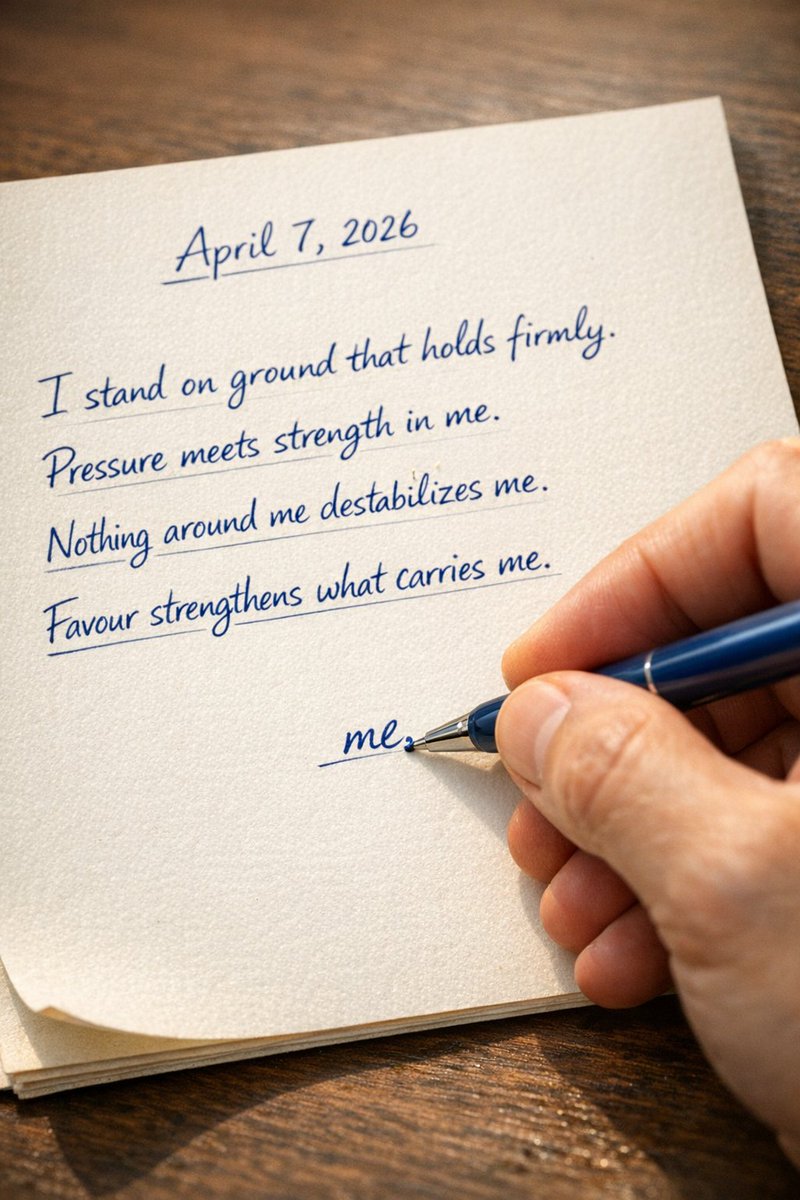 April 7, 2026
I stand on ground that holds firmly.
Pressure meets strength in me.
Nothing around me destabilizes me.
Favour strengthens what carries me.
me,